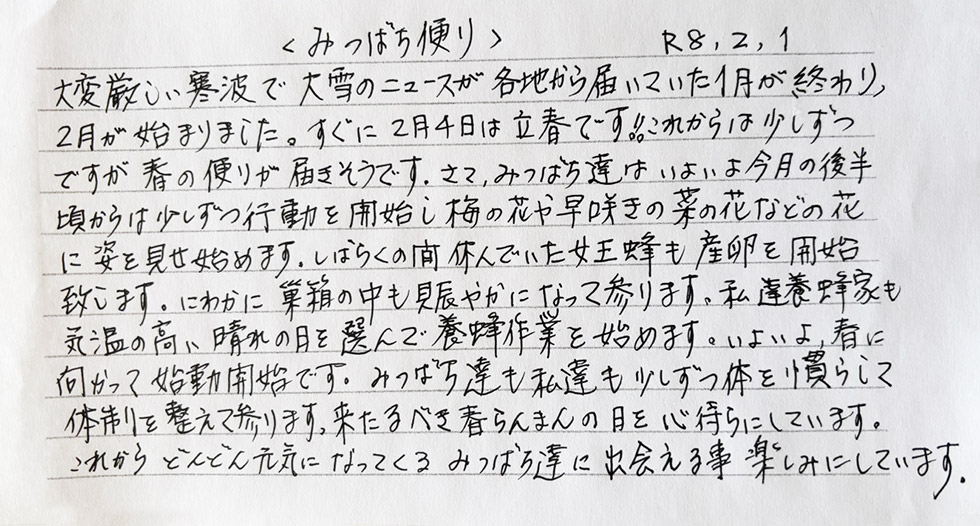 <みつばち便り> R8,2,1
大変厳しい寒波で大雪のニュースが各地から届いていた1月が終わり,
2月が始まりました。すぐに2月4日は立春です!!これからは少しずつ
ですが春の便りが届きそうです.さて,みつばち達はいよいよ今月の後半
頃からは少しずつ行動を開始し梅の花や早咲きの菜の花などの花
に姿を見せ始めます.しばらくの間休んでいた女王蜂も産卵を開始
致します。にわかに巣箱の中も賑やかになって参ります。私達養蜂家も
気温の高い晴れの日を選んで養蜂作業を始めます。いよいよ,春に
向かって始動開始です。みつばち達も私達も少しずつ体を慣らして
体制を整えて参ります。来たるべき春らんまんの日を心待ちにしています。
これからどんどん元気になってくるみつばち達に出会える事楽しみにしています.